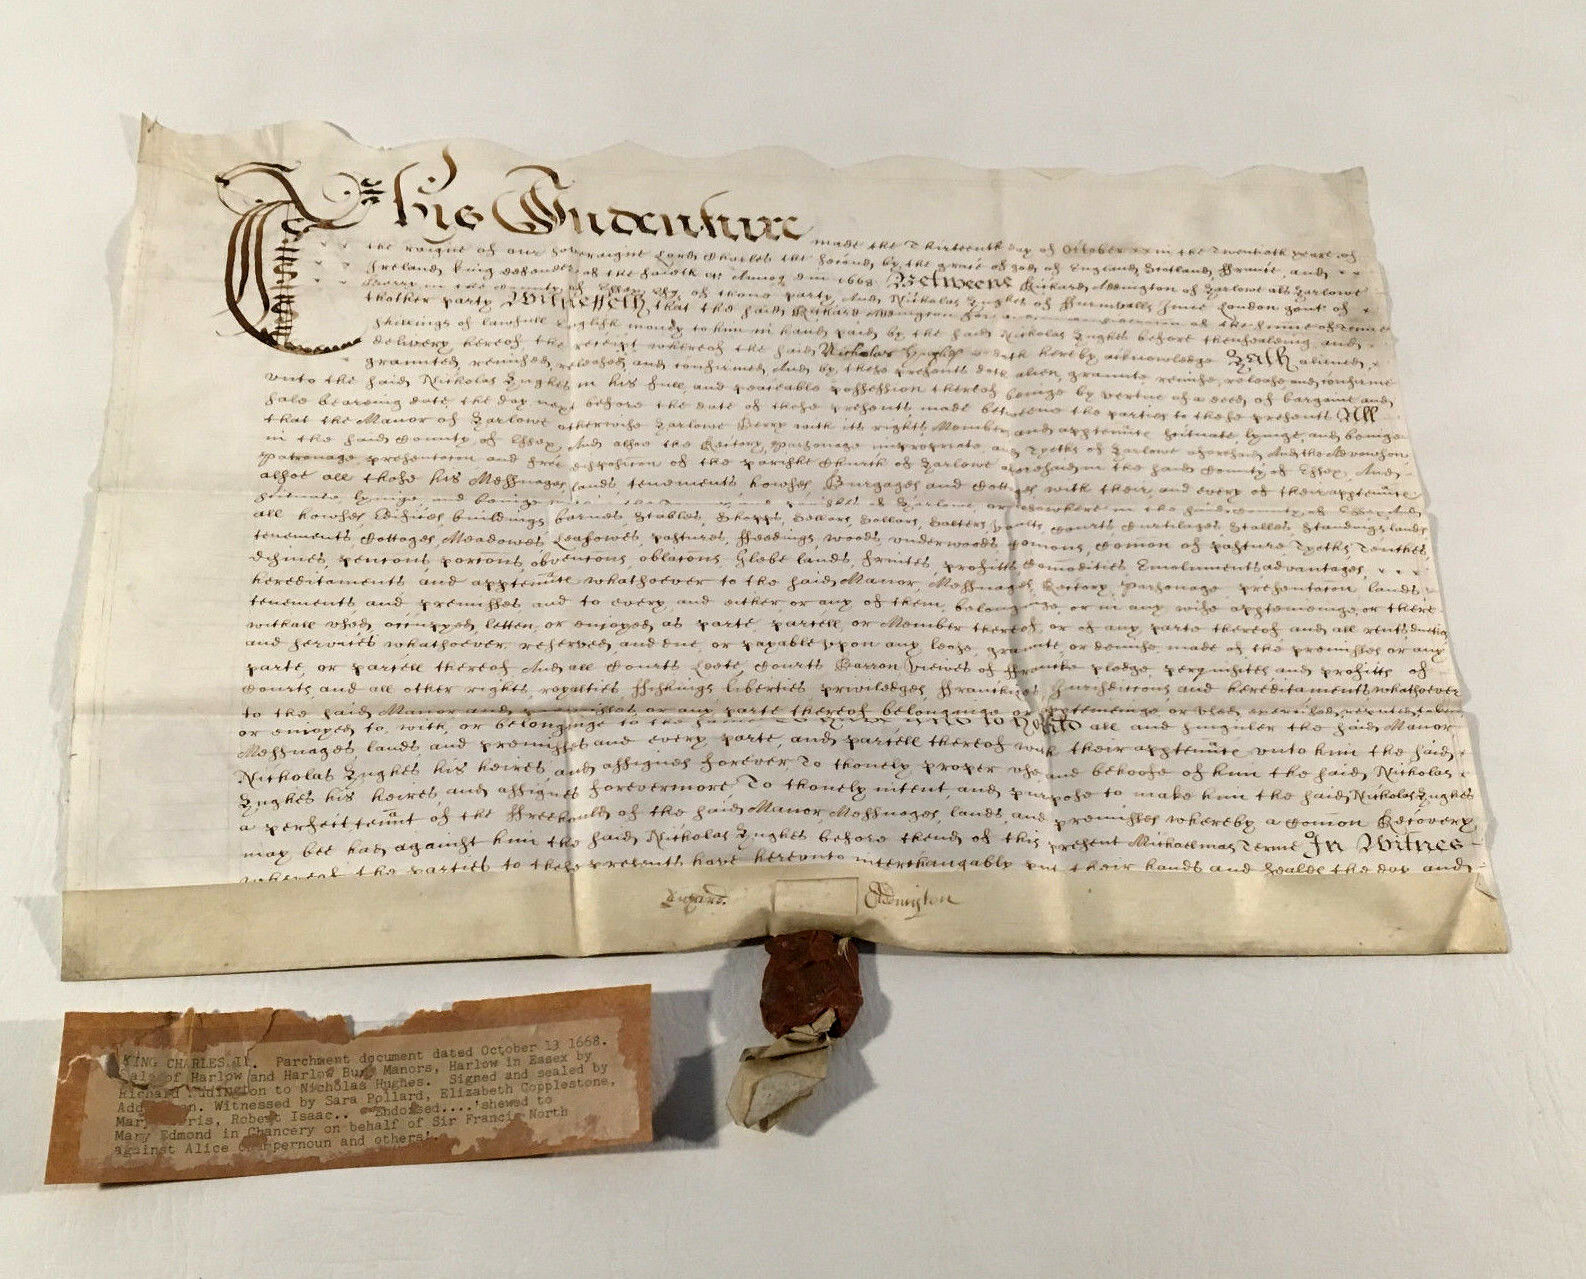 This Indenture made the Thirteenth day of October in the Twentieth yeare of
the raigne of our Soveraigne Lord Charles the Second by the grace of god of England Scotland France and
Ireland King defender of the faieth &c Annoq dni 1668 Betweene Richard Addington of Harlowe als Harlowe
Berry in the County of Essex Esq of thone party And Nicholas Hughes of Furnivalls Inne London gent of
thother party Witnesseth that the said Richard Addington for of the summe of Tenne
shillings of lawfull English money to him in hand paid by the said Nicholas Hughes before thensealeing and
delivery hereof the receipt whereof the said Nicholas Hughes doth hereby acknowledge Hath aliened
graunted remised released and confirmed And by these presents doth alien, graunte remise, release and confirme
unto the said Nicholas Hughes in his full and peaceable possession thereof beinge by vertue of a deed of bargaine and
sale beareing date the day next before the date of these presents made betweene the parties to these presents All
that the Manor of Harlowe otherwise Harlowe Berry with its rights Members and apptenñce scituate lyinge and beinge
in the said County of Essex, And alsoe the Rectory, parsonage impropriate, and Tyeths of Harlowe aforesaid And the Advowson
Patronage presentacon and free disposicon of the parishe Church of Harlowe aforesaid in the said County of Essex, And
alsoe all those his Messuages lands tenements howses Burgages and Cottages with their, and every of their apptenñce
scituate lyinge and beinge of Harlowe or elsewhere in the said County of Essex And
all howses Edifices, buildings barnes, Stables, Shopps, Sellars, Sollars, vaults, Courts Curtilages Stalles Standings lands
tenements Cottages, Meadowes Leasowes, pastures, ffeedings woods underwoods Comons, Comon of pasture Tyeths, Tenthes
pencons, porcons, obvencons, oblacons, Glebe lands, fruites, profitts Comodities Emoluments advantages,
hereditaments and apptenñce whatsoever to the said Manor, Messuages Rectory, Parsonage, presentacon lands
tenements and premisses, and to every, and either or any of them, belonginge, or in any wise apptemeinge, or there
withall used, occupyed letten, or enioyed as parte parcell, or Member thereof, or of any parte thereof and all rents duties
and services whatsoever reserved and due, or payable upon any lease, graunte, or demise made of the premisses or any
parte, or parcell thereof And all Courts Leete, Courts Barron Viewes of ffrancke pledge, perquisites and profitts of
Courts, and all other rights, royalties ffishings liberties priviledges ffranchizes Jurisdictions and hereditaments whatsoever
to the said Manor and premisses or any parte thereof belonginge or apptemeinge or used exercised, reputed taken
or enioyed to, with, or belonginge to the same To Have and To Hold all and singuler the said Manor
Messuages lands and premisses and every parte, and parcell thereof with their apptenñce unto him the said
Nicholas Hughes his heires, and assignes forever To thonely proper use and behoofe of him the said Nicholas
Hughes his heires, and assignes forevermore, To thonely intent, and purpose to make him the said Nicholas Hughes
a perfect tenñt of the ffreehould of the said Manor, Messuages, lands, and premisses whereby a Comon Recovery
may bee had against him the said Nicholas Hughes before thend of this present Michaelmas Terme In Witnes
whereof the parties to these presents have hereunto interchangably put their hands and Seales the day and
Richard Addington
KING CHARLES II. Parchment document dated October 13 1668.
of Harlow and Harlow Bury Manors, Harlow in Essex by
Richard Addington to Nicholas Hughes. Signed and sealed by
Witnessed by Sara Pollard, Elizabeth Copplestone,
Robert Isaac.. Endorsed....'shewed to
Mary Edmond in Chancery on behalf of Sir Francis North
against Alice and others'